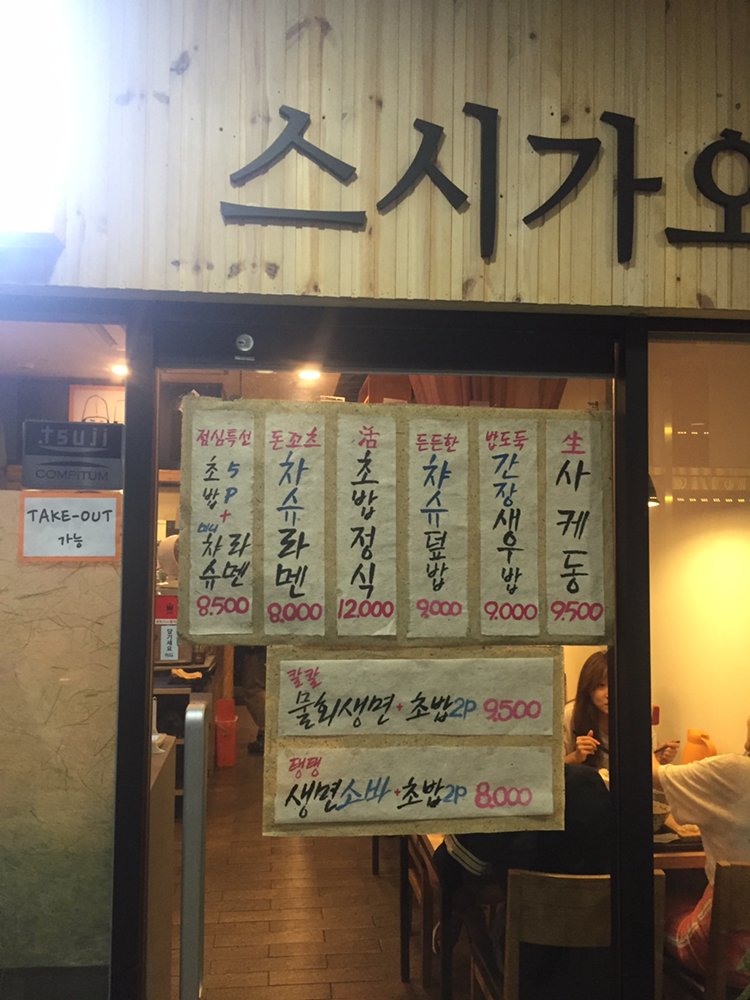 스시가오
tsuji
COMPITUM
TAKE-OUT
가능
점심특선
초밥 5P
+
미니
차슈라멘
8.500
돈꼬츠
차슈라멘
8.000
活
초밥정식
12.000
든든한
챠슈덮밥
9.000
밥도둑
간장새우밥
9.000
生
사케동
9.500
칼칼
물회생면+초밥2P 9,500
탱탱
생면소바+초밥2P 8.000
당기세요